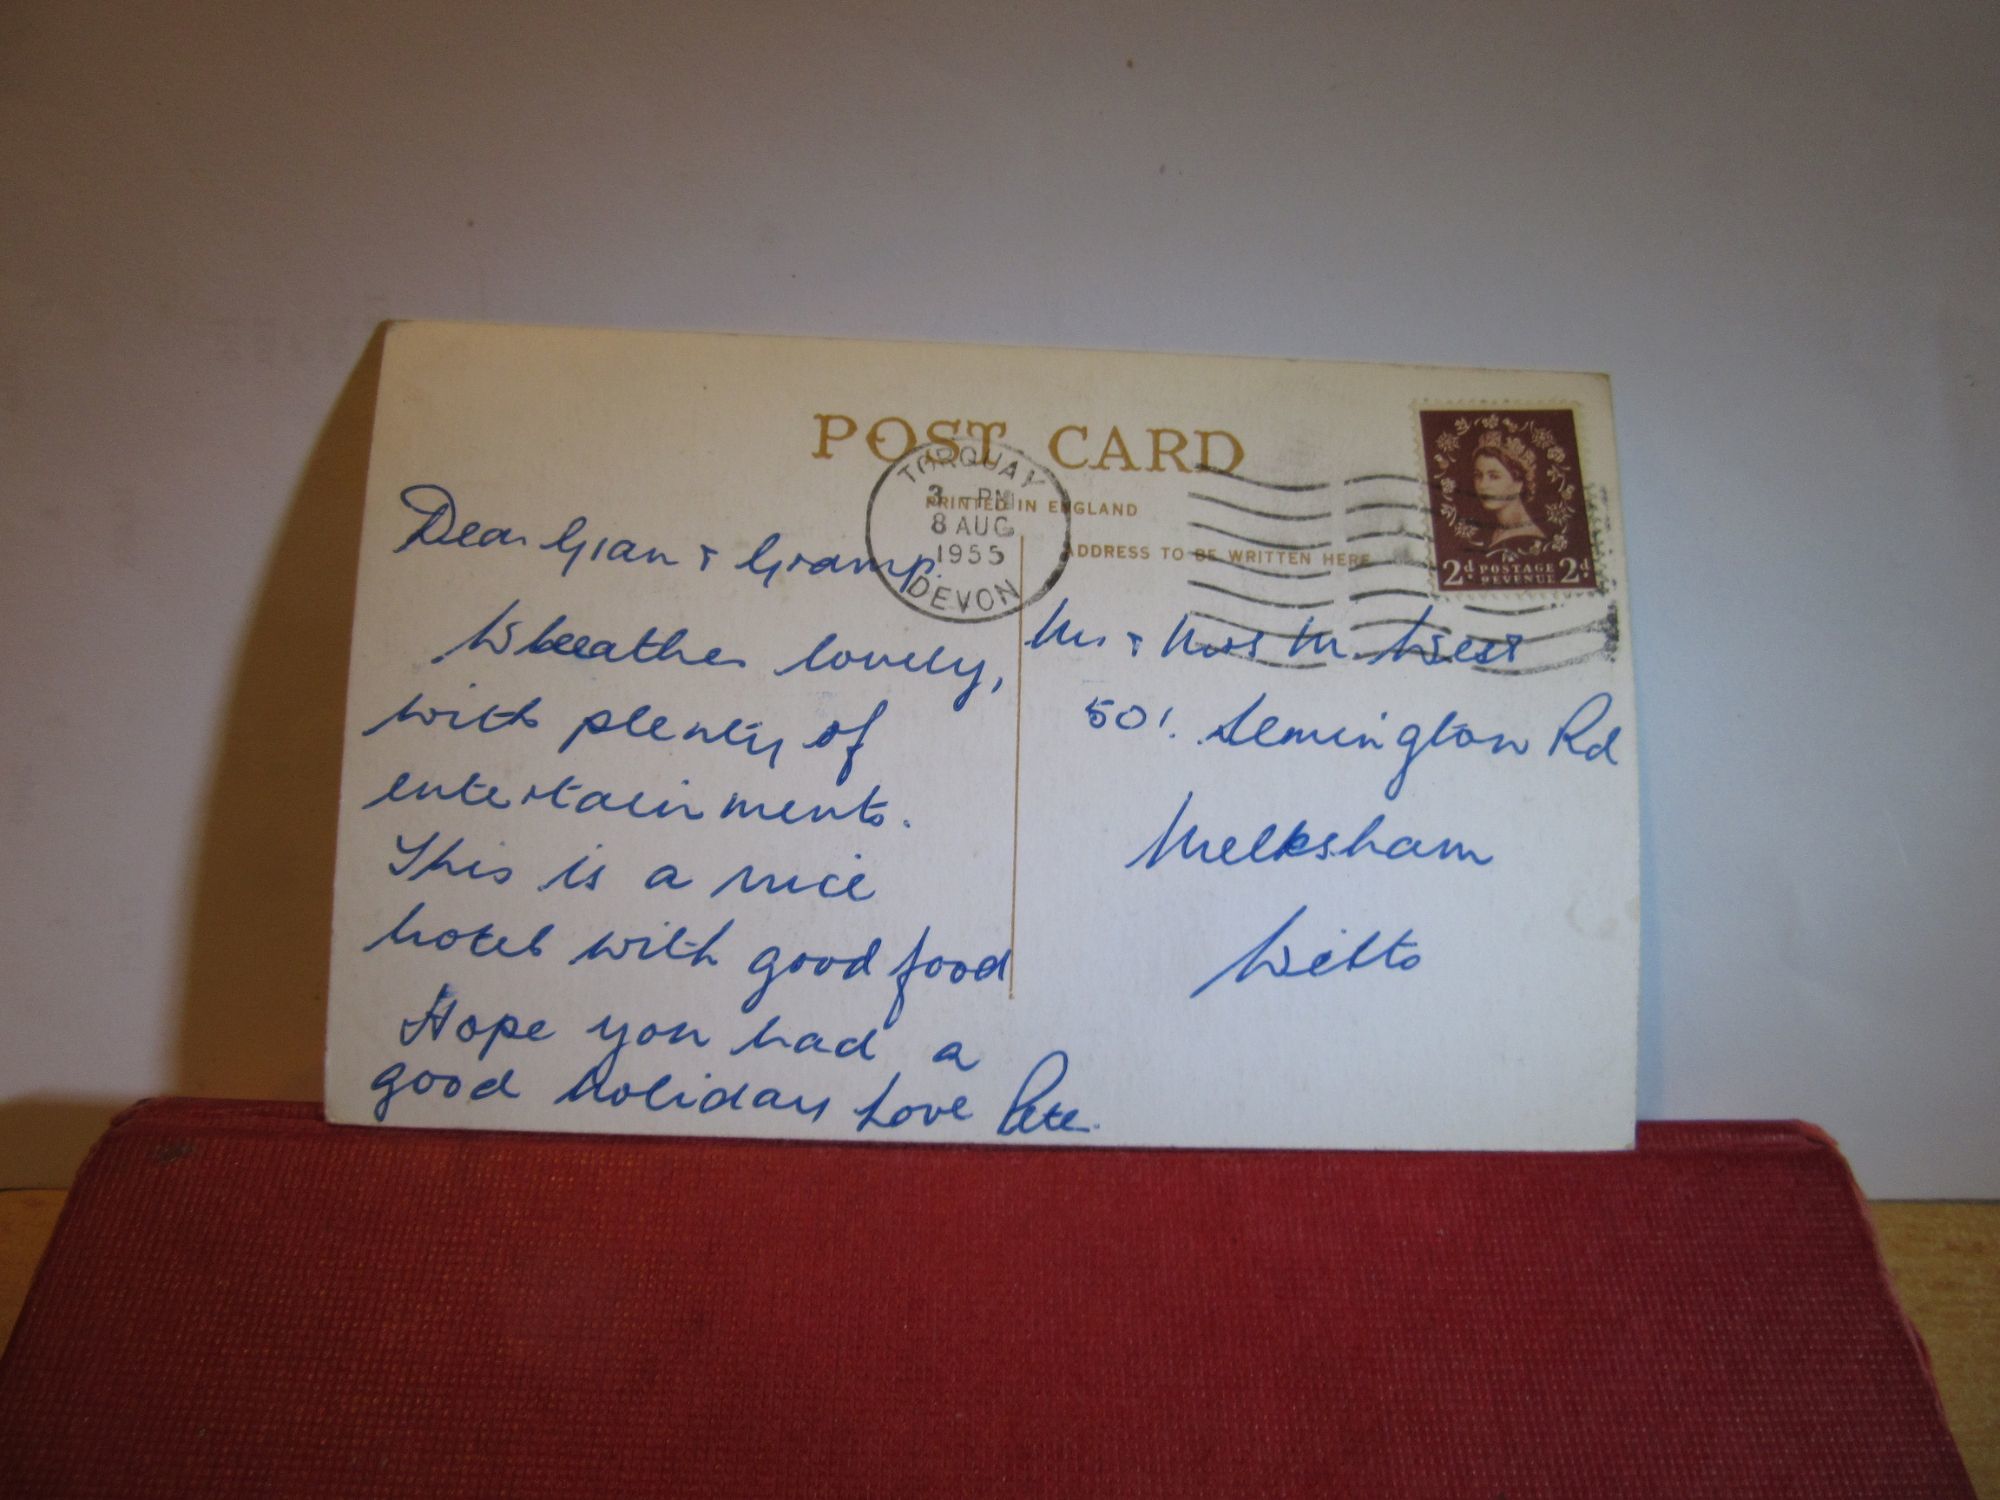 POST CARD
PRINTED IN ENGLAND
ADDRESS TO BE WRITTEN HERE
TORQUAY
3 - PM
8 AUG
1955
DEVON
2d POSTAGE REVENUE 2d
Dear Gran & Gramp.
Weather lovely,
with plenty of
entertainments.
This is a nice
hotel with good food
Hope you had a
good holiday Love Pete.
Mr & Mrs M. West
501. Semington Rd
Melksham
Wilts